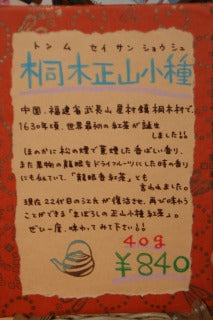 トンム セイサンショウシュ
桐木正山小種
中国、福建省武夷山星村鎮桐木村で、
1630年頃、世界最初の紅茶が誕生
しました!!
ほのかに松の煙で薫煙した香ばしい香り、
また果物の龍眼をドライフルーツにした時の香り
にも似ていて、「龍眼香紅茶」とも
言われました。
現在22代目の江氏が復活させ、再び味わう
ことができる「まぼろしの正山小種紅茶」。
ぜひ一度、味わってみて下さい!!
40g
¥840